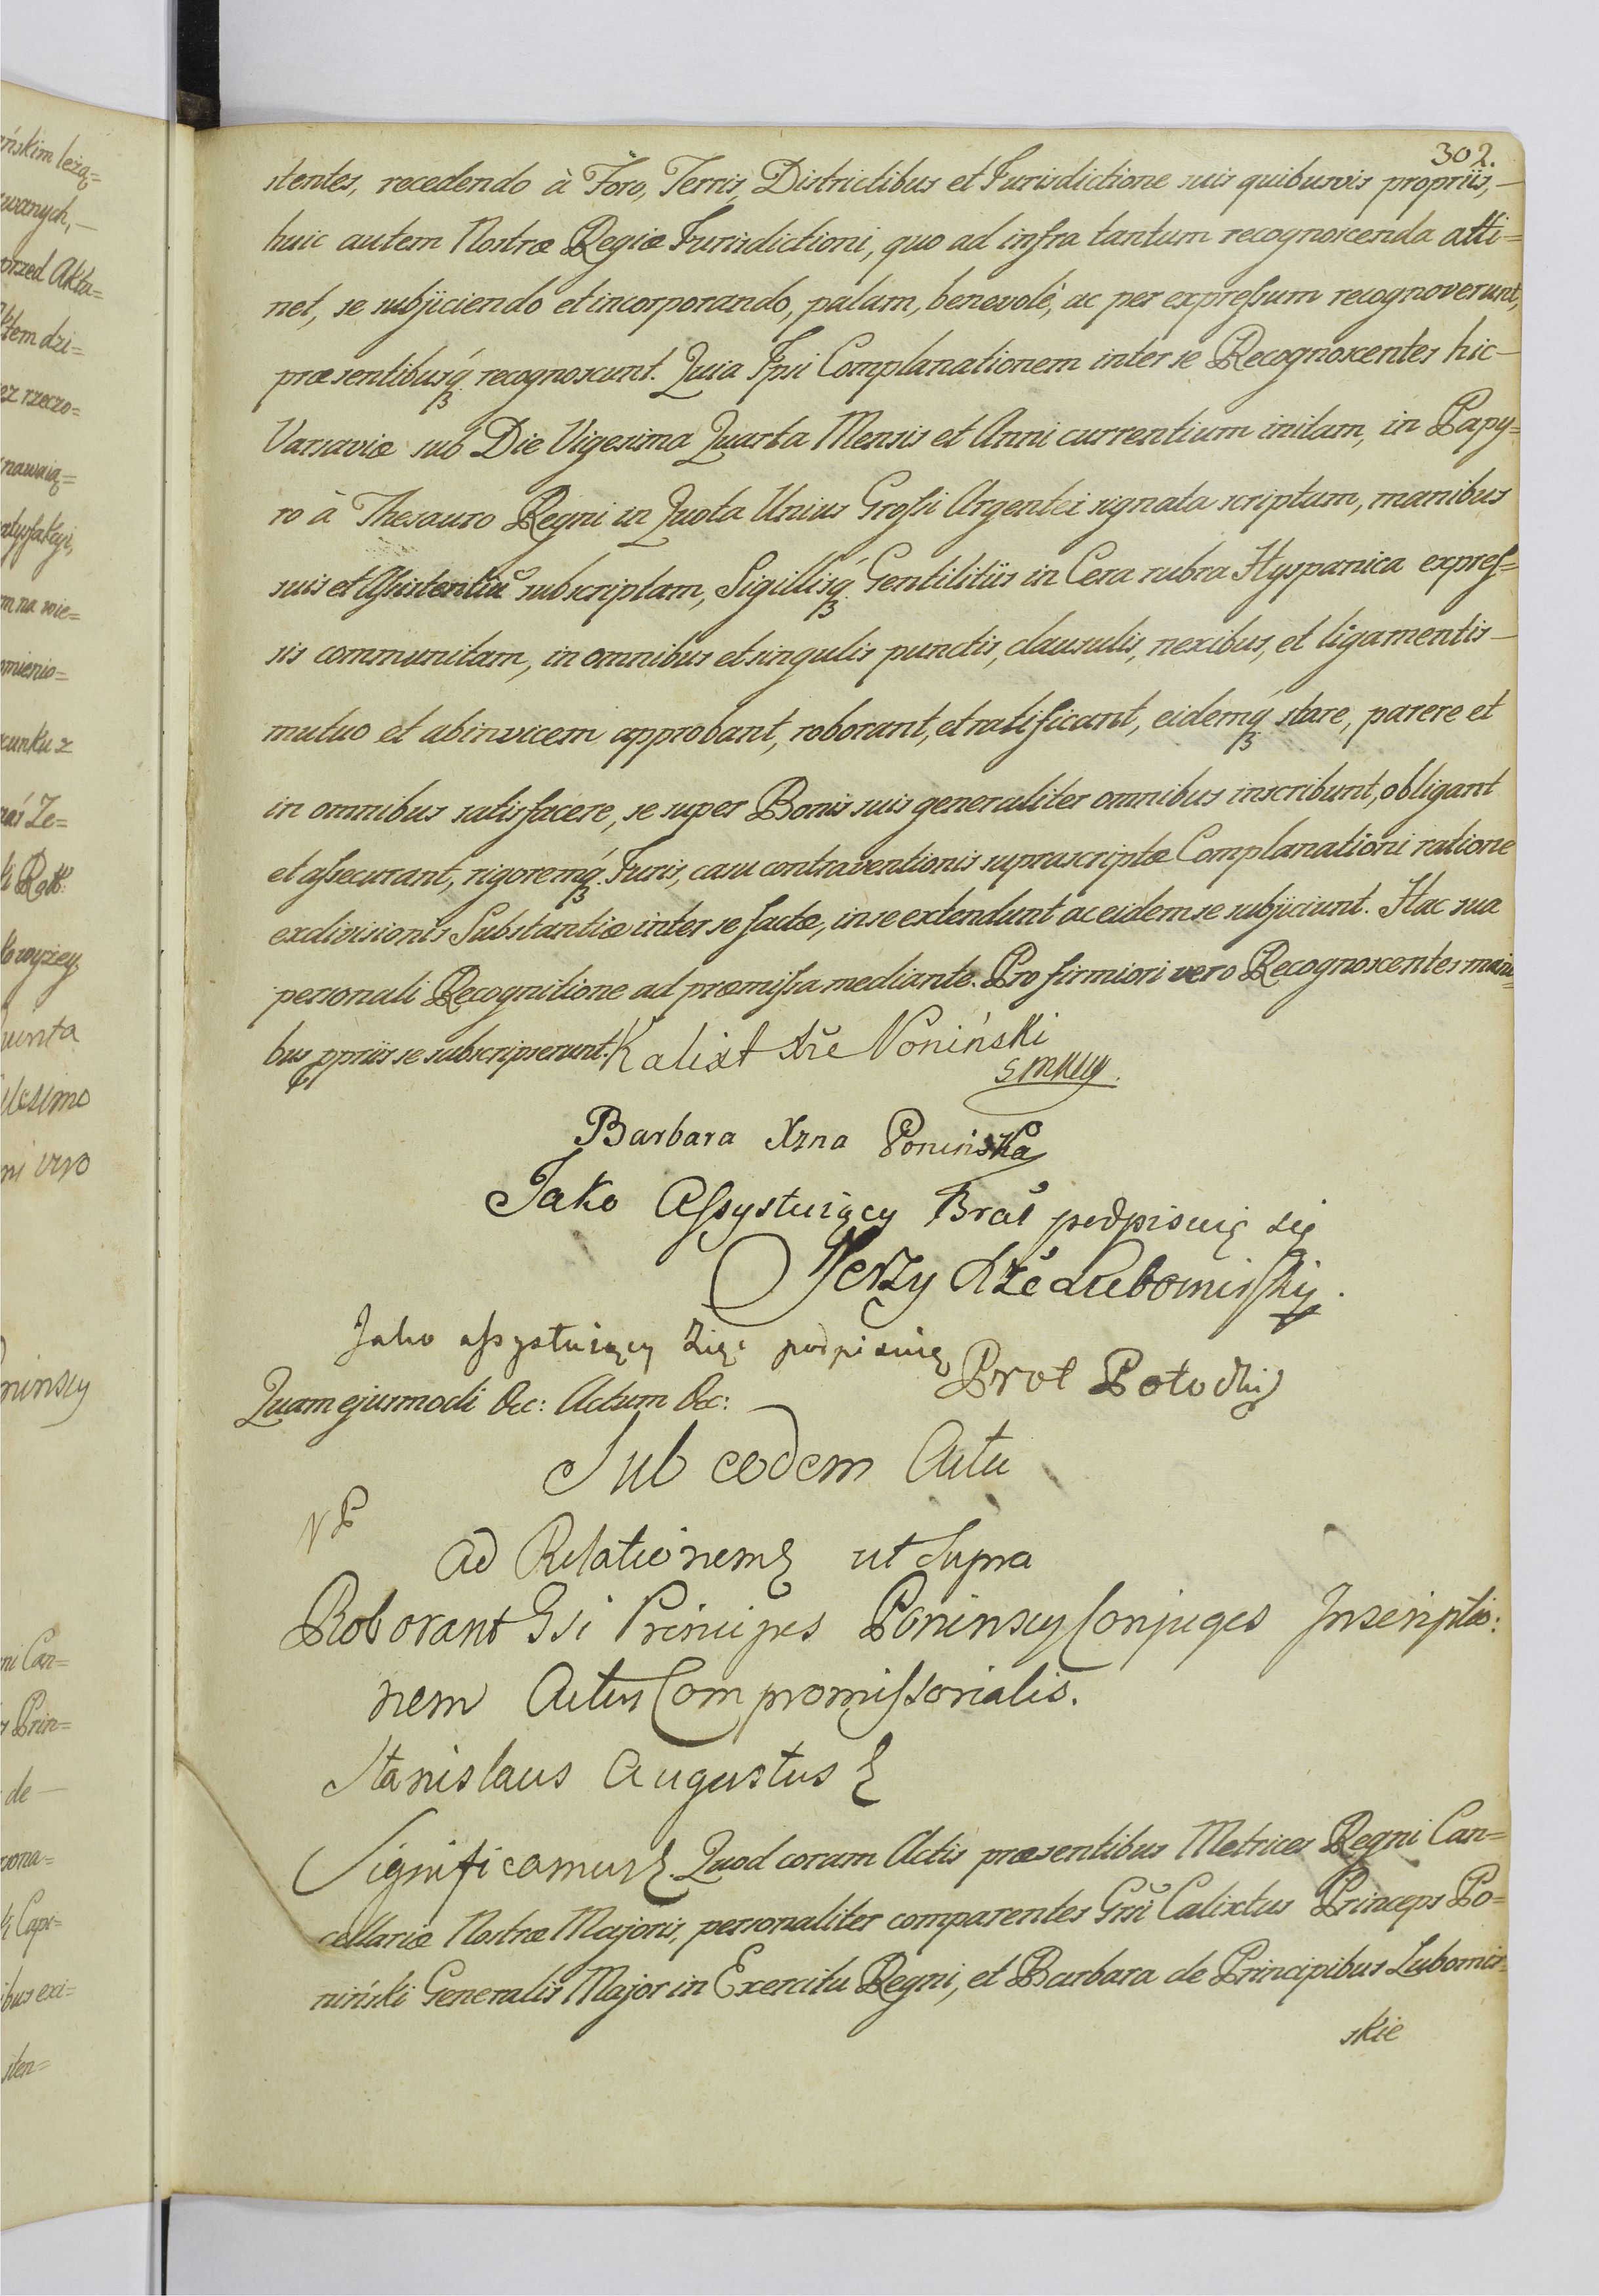 ńskim leżą=
wanych,—
przed Akta=
tem dzi=
ez rzeczo=
nawaią=
atysfakcyi,
m na wie=
omienio=
cunku z
nás Ze=
ki Rot:
ko wyżey
Quinta
ilesimo
ni vero
oninscy
ni Can=
s Prin=
de —
sona=
ki Capi=
ibus exi=
sten=
302.
stentes, recedendo à Foro, Terris, Districtibus et Jurisdictione suis quibusvis propriis,—
huic autem Nostræ Regiæ Jurisdictioni, quo ad infra tantum recognoscenda atti=
net, se subjiciendo et incorporando, palam, benevolè, ac per expreſsum recognoverunt,
præsentibusq́ꝫ recognoscunt. Quia Ipsi Complanationem inter se Recognoscentes hic—
Varsaviæ sub Die Vigesima Quarta Mensis et Anni currentium initam, in Papy=
ro à Thesauro Regni in Quota Unius Groſsi Argentei signata scriptam, manibus
suis et Aſsistentiũ subscriptam, Sigillisq́ꝫ Gentilitiis in Cera rubra Hyspanica expreſ=
sis communitam, in omnibus et singulis punctis, clausulis, nexibus, et ligamentis—
mutuo et abinvicem approbant, roborant, et ratificant, eidemq́ꝫ stare, parere et
in omnibus satisfacere, se super Bonis suis generaliter omnibus inscribunt, obligant
et aſsecurant, rigoremq́ꝫ Juris, casu contraventionis suprascriptæ Complanationi ratione
exdivisionis Substantiæ inter se factæ, in se extendunt ac eidem se subjiciunt. Hac sua
personali Recognitione ad præmiſsa mediante. Pro firmiori vero Recognoscentes mani=
bus ppriis se subscripserunt. Kalixt Xże Poniński
Barbara Xżna Ponińska
Jako Aſsystuiący Brat podpisuię się
Jerzy Xże Lubomirſki.
Jako aſsystuiący Zięć podpisuię Prot Potocki
Quam ejusmodi &c: Actum &c:
Sub eodem Actu
ad Relationem ut Supra
Roborant Gsi Principes Poninscy Conjuges Inscriptio:
nem Actus Compromiſsorialis.
Stanislaus Augustus
Significamus Quod coram Actis præsentibus Metrices Regni Can=
cellariæ Nostræ Majoris, personaliter comparentes Grsĩ Calixtus Princeps Po=
niński Generalis Major in Exercitu Regni, et Barbara de Principibus Lubomir=
skie